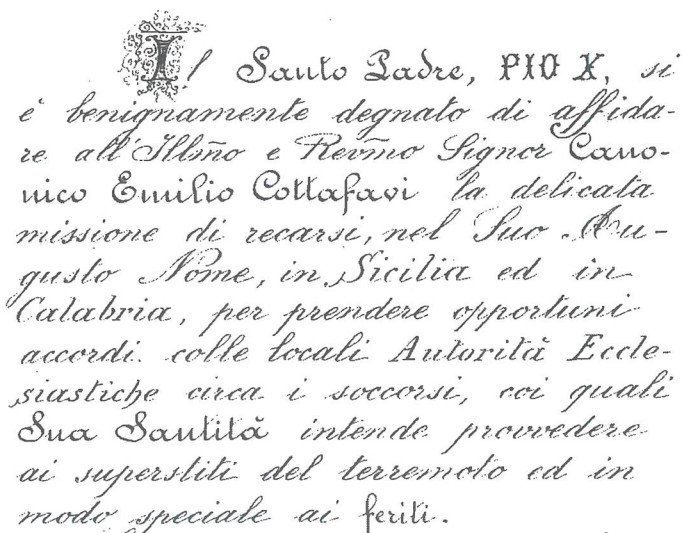 Il Santo Padre, PIO X, si
è benignamente degnato di affida-
re all'Illm̃o e Revm̃o Signor Cano-
nico Emilio Cottafavi la delicata
missione di recarsi, nel Suo Au-
gusto Nome, in Sicilia ed in
Calabria, per prendere opportuni
accordi colle locali Autorità Eccle-
siastiche circa i soccorsi, coi quali
Sua Santità intende provvedere
ai superstiti del terremoto ed in
modo speciale ai feriti.